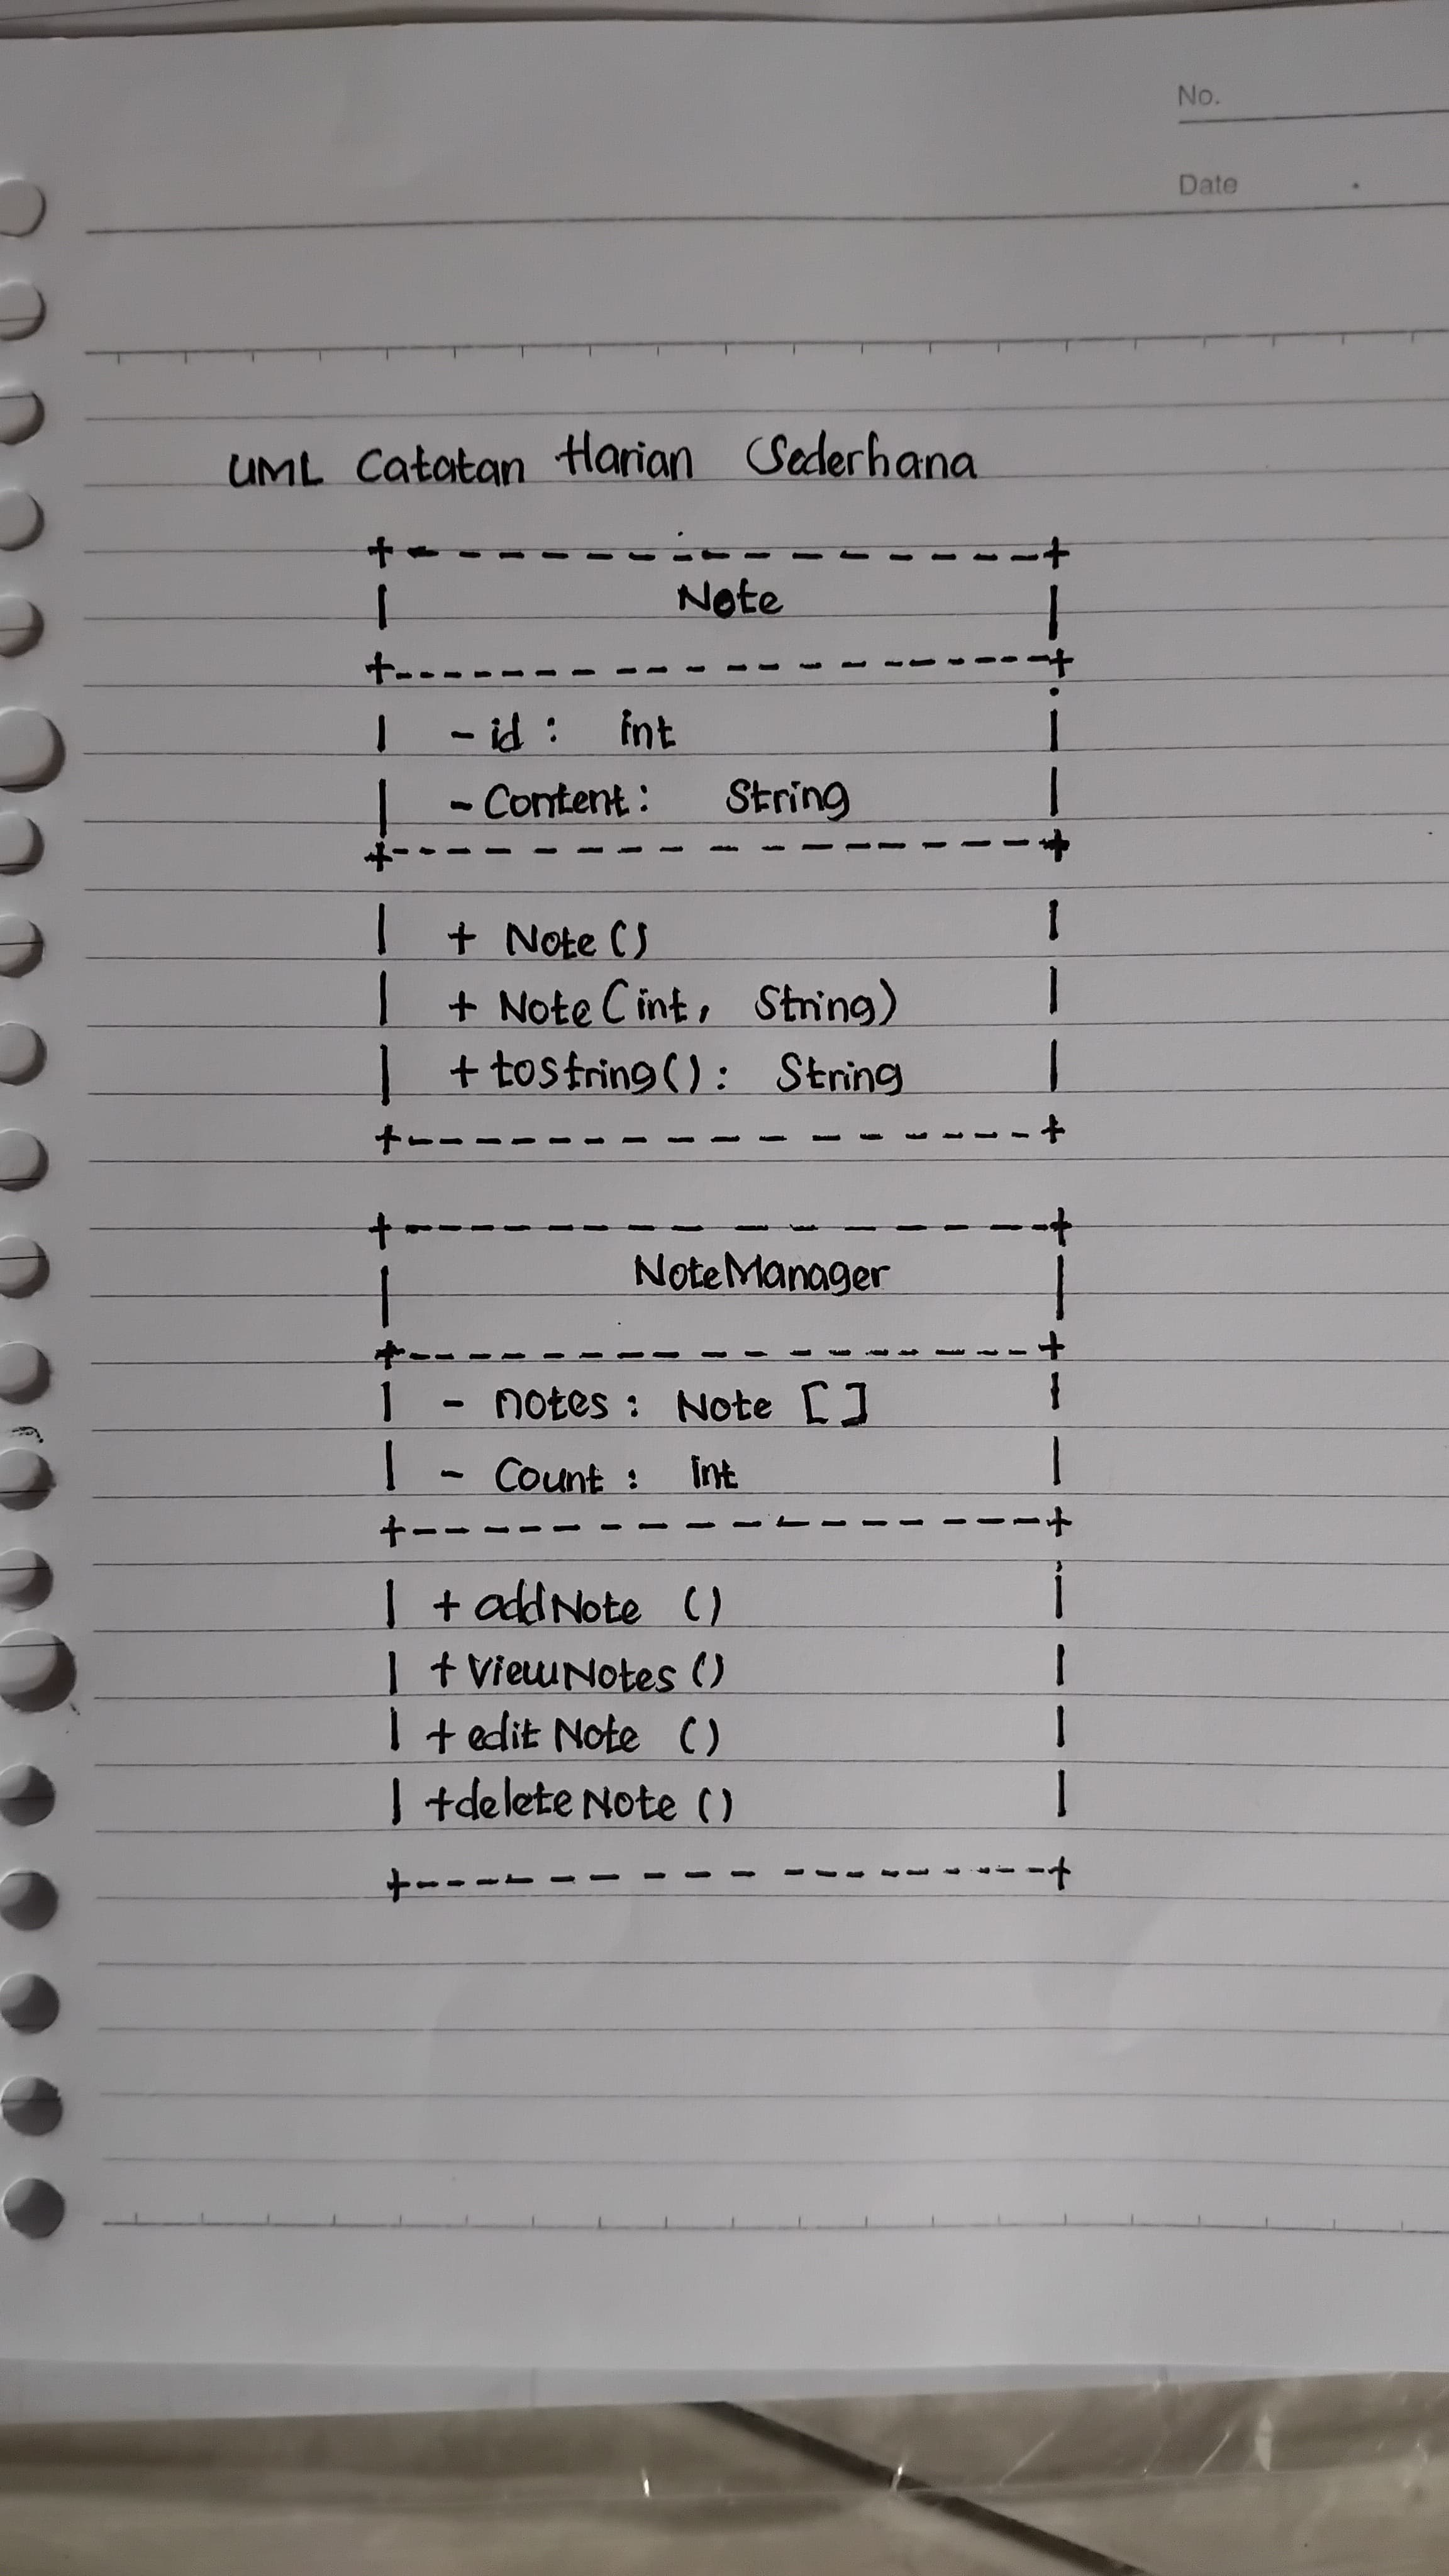 No.
Date
UML Catatan Harian Sederhana
Note
- id : int
- Content : String
+ Note ()
+ Note (int, String)
+ tostring() : String
NoteManager
- notes : Note []
- Count : int
+ addNote ()
+ viewNotes ()
+ edit Note ()
+ deleteNote ()